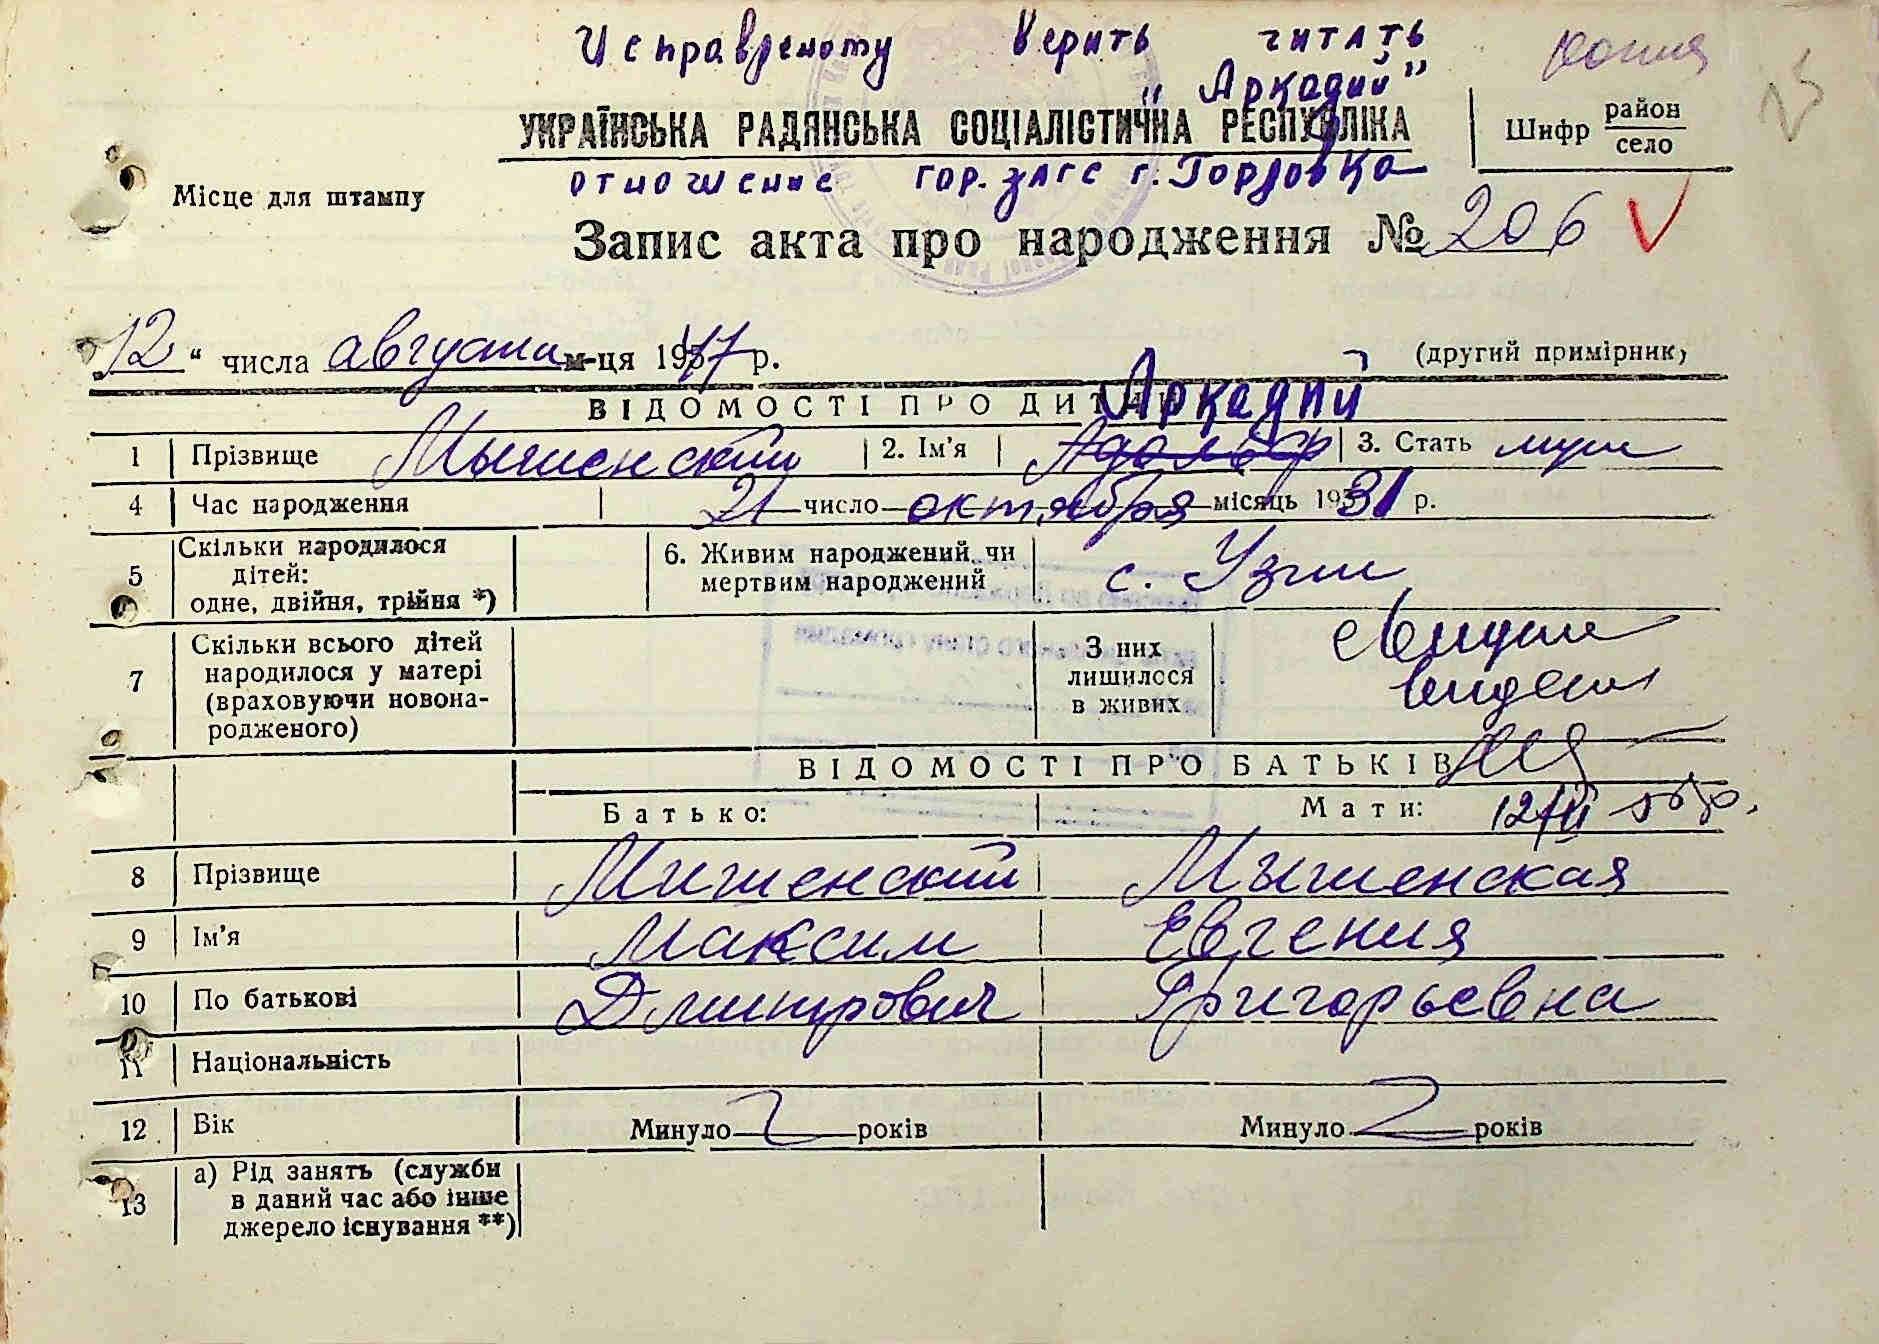 Исправленому верить читать копия
„Аркадий"
УКРАЇНСЬКА РАДЯНСЬКА СОЦІАЛІСТИЧНА РЕСПУБЛІКА
Шифр район
село
Місце для штампу
отношение гор. загс г. Горловка
Запис акта про народження № 206
12 " числа августа м-ця 1947 р.
(другий примірник)
Аркадий
ВІДОМОСТІ ПРО ДИТИНУ
1 Прізвище Мышенский 2. Ім'я Адольф 3. Стать муж
4 Час народження 21 число октября місяць 1931 р.
5 Скільки народилося
дітей:
одне, двійня, трійня *)
6. Живим народжений чи
мертвим народжений
с. Узин
7 Скільки всього дітей
народилося у матері
(враховуючи новона-
родженого)
З них
лишилося
в живих
выдано
ВІДОМОСТІ ПРО БАТЬКІВ
Батько: Мати:
8 Прізвище Мишенский Мышенская
9 Ім'я Максим Евгения
10 По батькові Дмитрович Григорьевна
11 Національність
12 Вік Минуло 2 років Минуло 2 років
13 а) Рід занять (служби
в даний час або інше
джерело існування **)